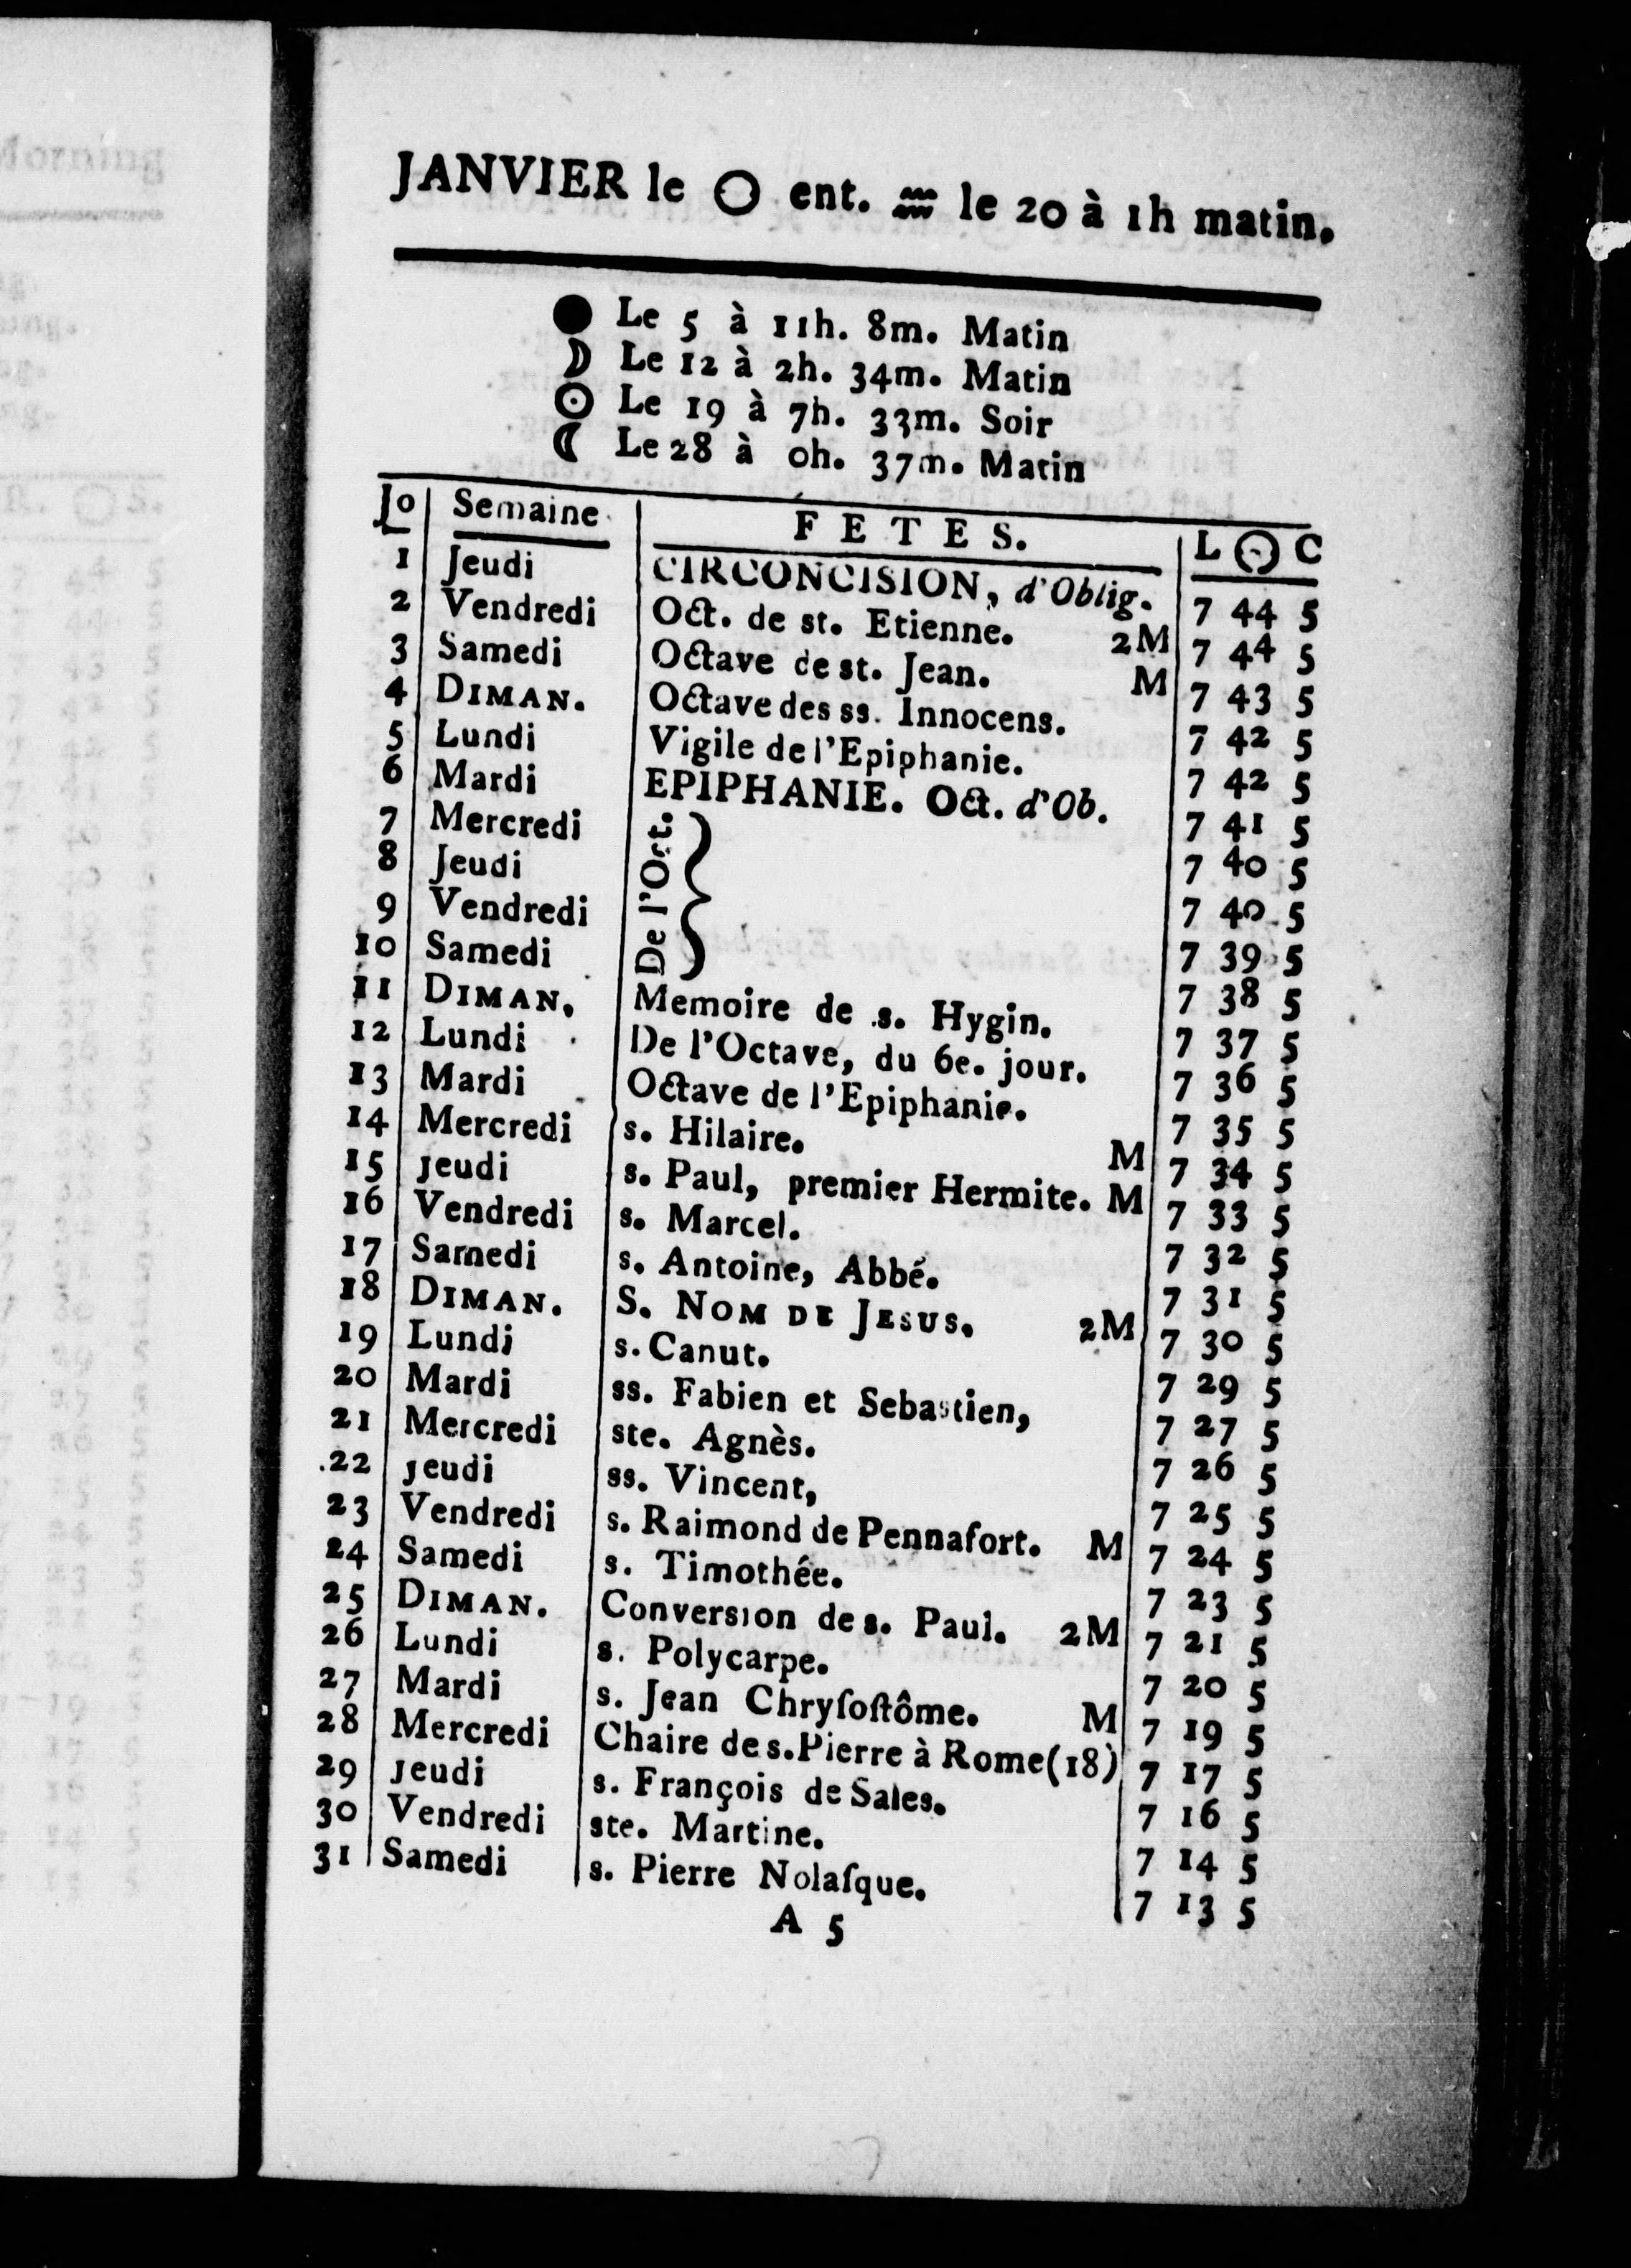 Morning
JANVIER le ◯ ent. ♒ le 20 à 1h matin.
● Le 5 à 11h. 8m. Matin
☽ Le 12 à 2h. 34m. Matin
☉ Le 19 à 7h. 33m. Soir
☾ Le 28 à 0h. 37m. Matin
Jo Semaine FETES. L ☉ C
1 Jeudi CIRCONCISION, d'Oblig. 7 44 5
2 Vendredi Oct. de st. Etienne. 2M 7 44 5
3 Samedi Octave de st. Jean. M 7 43 5
4 DIMAN. Octave des ss. Innocens. 7 42 5
5 Lundi Vigile de l'Epiphanie. 7 42 5
6 Mardi EPIPHANIE. Oct. d'Ob. 7 41 5
7 Mercredi De l'Oct. 7 40 5
8 Jeudi 7 40 5
9 Vendredi 7 39 5
10 Samedi 7 38 5
11 DIMAN, Memoire de s. Hygin. 7 37 5
12 Lundi De l'Octave, du 6e. jour. 7 36 5
13 Mardi Octave de l'Epiphanie. 7 35 5
14 Mercredi s. Hilaire. M 7 34 5
15 Jeudi s. Paul, premier Hermite. M 7 33 5
16 Vendredi s. Marcel. 7 32 5
17 Samedi s. Antoine, Abbé. 7 31 5
18 DIMAN. S. NOM DE JESUS. 2M 7 30 5
19 Lundi s. Canut. 7 29 5
20 Mardi ss. Fabien et Sebastien, 7 27 5
21 Mercredi ste. Agnès. 7 26 5
22 Jeudi ss. Vincent, 7 25 5
23 Vendredi s. Raimond de Pennafort. M 7 24 5
24 Samedi s. Timothée. 7 23 5
25 DIMAN. Conversion de s. Paul. 2M 7 21 5
26 Lundi s. Polycarpe. 7 20 5
27 Mardi s. Jean Chryſoſtôme. M 7 19 5
28 Mercredi Chaire de s. Pierre à Rome (18) 7 17 5
29 Jeudi s. François de Sales. 7 16 5
30 Vendredi ste. Martine. 7 14 5
31 Samedi s. Pierre Nolaſque. 7 13 5
A 5